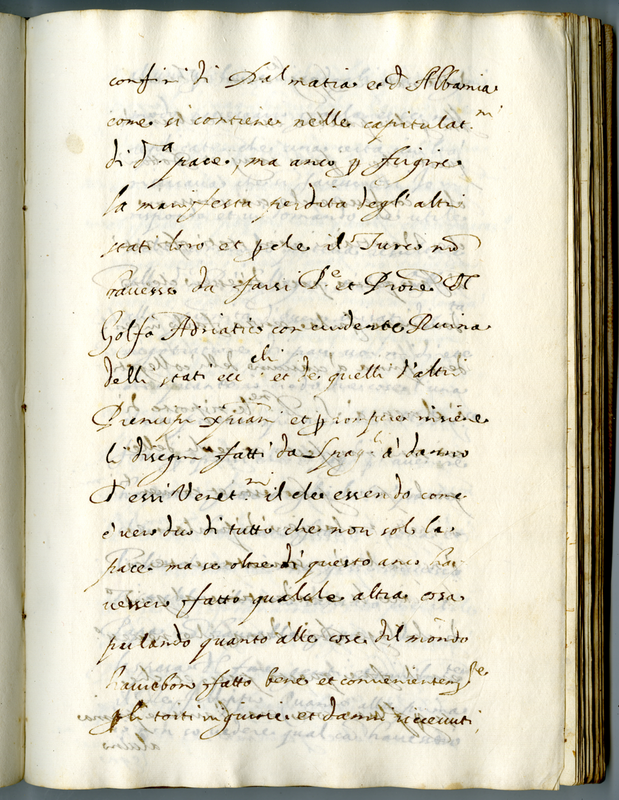 confin di Dalmatia et d Albania
come si contiene nelle capitulat.ni
di d.a pace, ma anco p fugire
la manifesta perdita degl'altri
stati loro et p che il Turco nō
havesse da farsi P.e et Prone dl
Golfo Adriatico con evidente Ruina
delli stati ecc.cli et de quelli d'altri
Prencipi xpiani et p romper insieme
li disegni fatti da Spag.li à danno
d essi Venet.ni il che essendo come
è vero dico di tutto che non sol la
pace ma se oltre di questo anco ha-
vessero fatto qualche altra cosa
parlando quanto alle cose dil mondo
haverebon fatto bene et convenientem.te
p li torti ingiurie et danni ricevuti